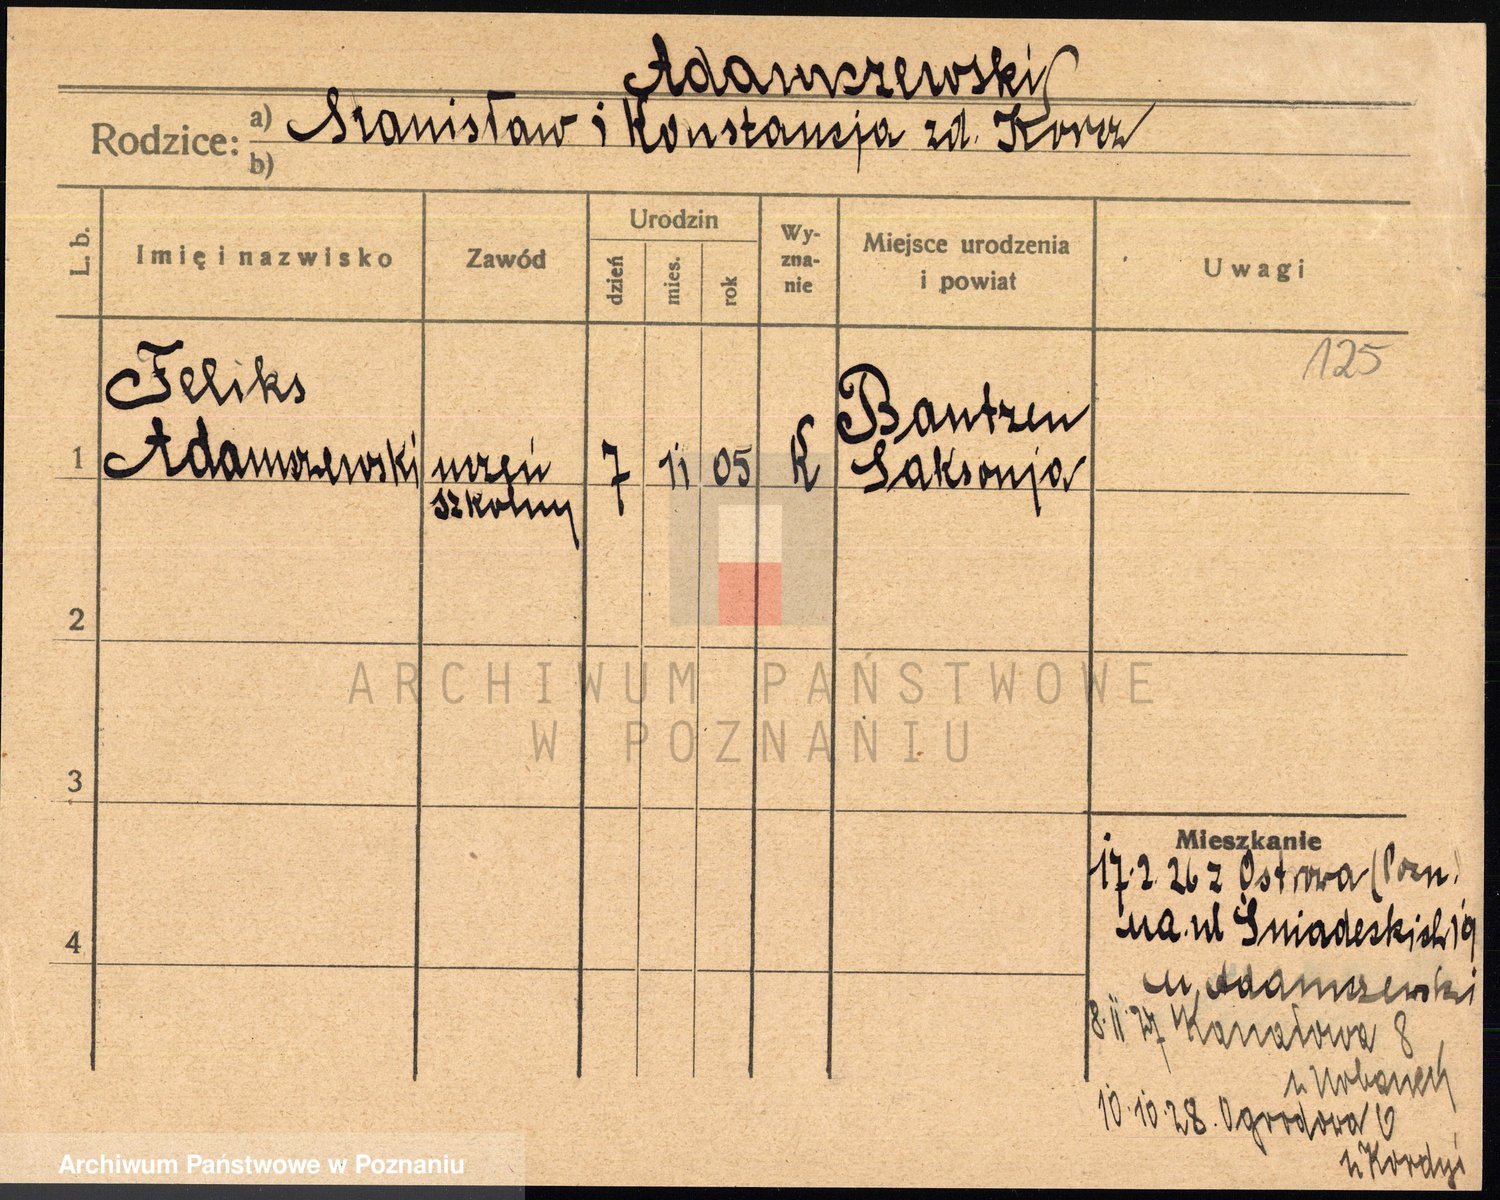 Adamczewski
Rodzice: a) Stanisław i Konstancja zd. Korcz
b)
L. b.
Imię i nazwisko
Zawód
Urodzin
dzień
mies.
rok
Wy-
zna-
nie
Miejsce urodzenia
i powiat
Uwagi
125
Feliks
Bautzen
1 Adamczewski uczeń 7 11 05 k Saksonja
szkolny
2
3
4
ARCHIWUM PAŃSTWOWE
W POZNANIU
Mieszkanie
17.2.26 z Ostrowa (Pozn.)
na ul Śniadeckich 19
u Adamczewski
8.11.27 Kanałowa 8
10.10.28. Ogrodowa
Archiwum Państwowe w Poznaniu